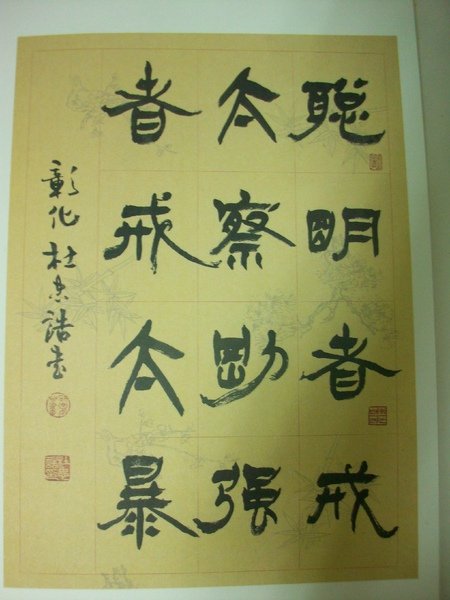 聰明者戒
太察剛强
者戒太暴
彰化杜忠誥書